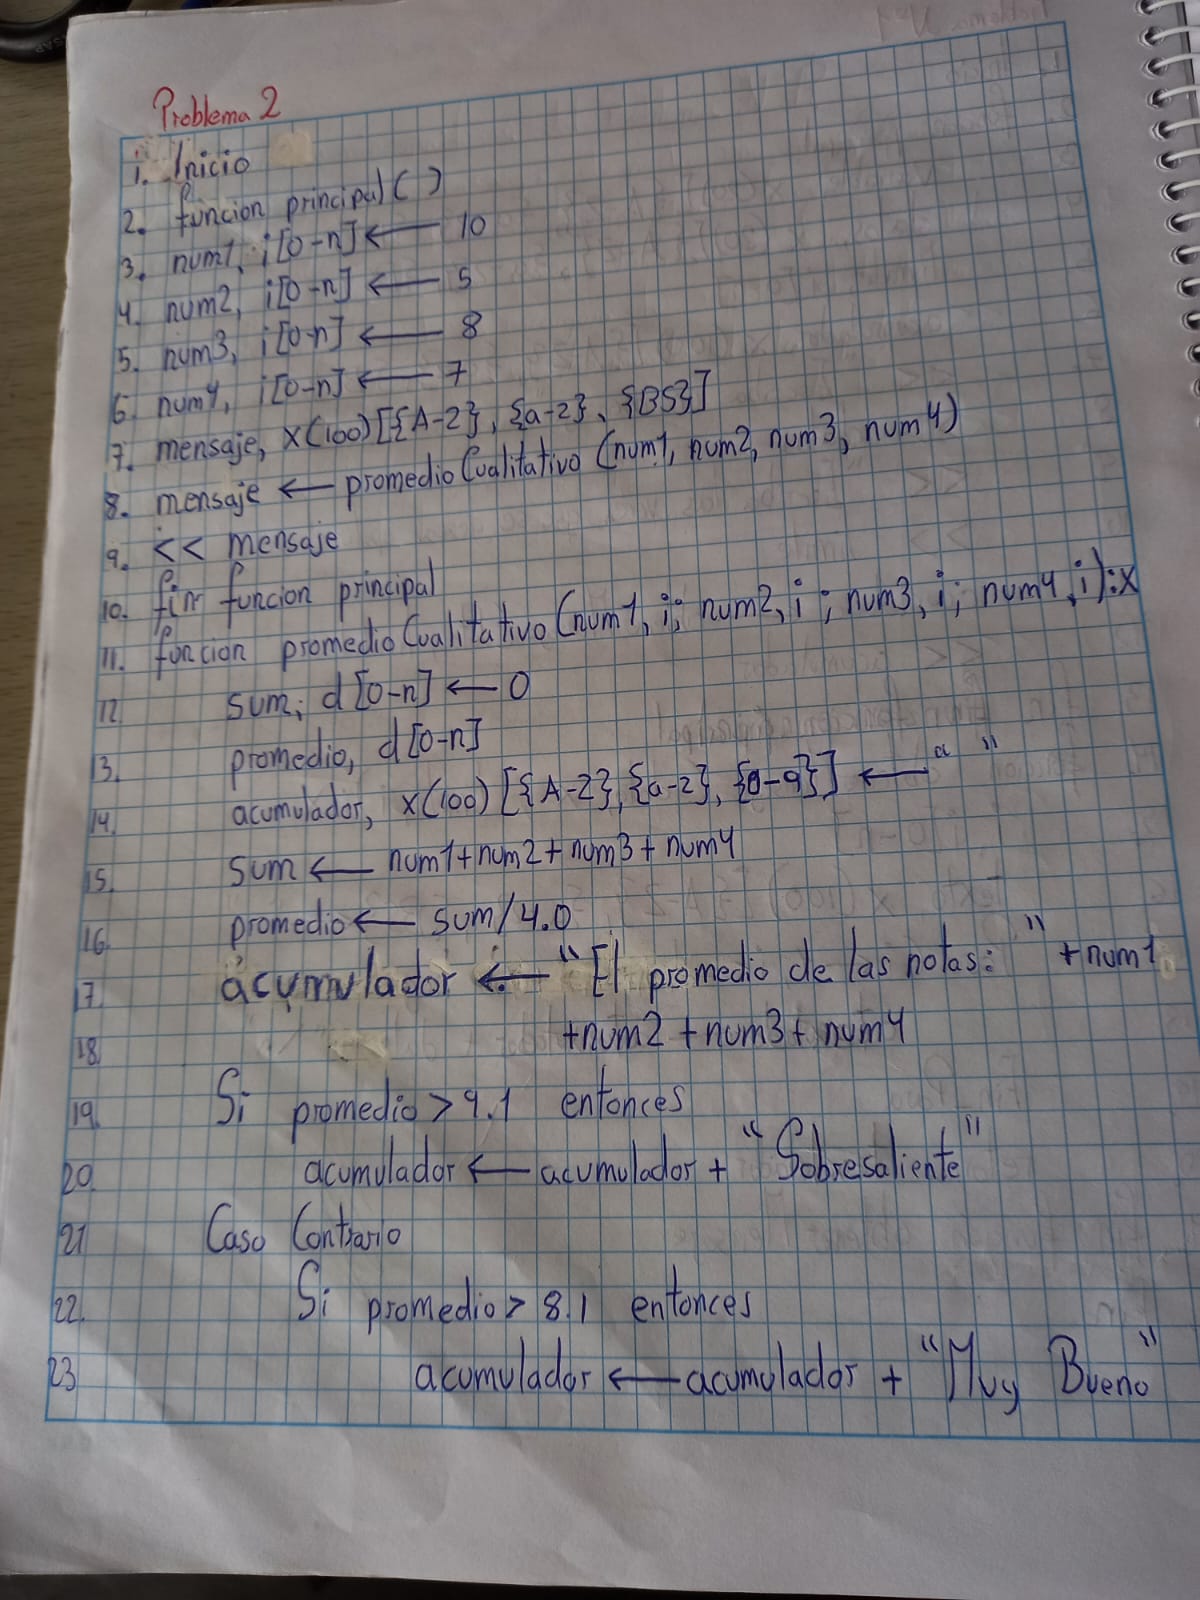 Problema 2
1. Inicio
2. funcion principal ( )
3. num1, i[0-n] ← 10
4. num2, i[0-n] ← 5
5. num3, i[0-n] ← 8
6. num4, i[0-n] ← 7
7. mensaje, x(100) [{A-Z}, {a-z}, {BS}]
8. mensaje ← promedioCualitativo (num1, num2, num3, num4)
9. << mensaje
10. fin funcion principal
11. funcion promedioCualitativo (num1, i; num2, i; num3, i; num4, i):x
12 sum, d[0-n] ← 0
13. promedio, d[0-n]
14. acumulador, x(100) [{A-Z}, {a-z}, {0-9}] ← " "
15. sum ← num1+num2+num3+num4
16. promedio ← sum/4.0
17 acumulador ← "El promedio de las notas: " +num1
18. +num2 +num3+num4
19. Si promedio > 9.1 entonces
20. acumulador ← acumulador + "Sobresaliente"
21 Caso Contrario
22. Si promedio > 8.1 entonces
23 acumulador ← acumulador + "Muy Bueno"